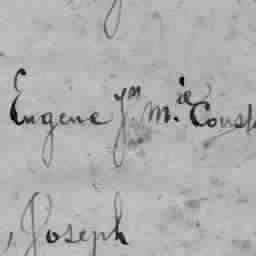 Eugène Jn M.ie Const
, Joseph